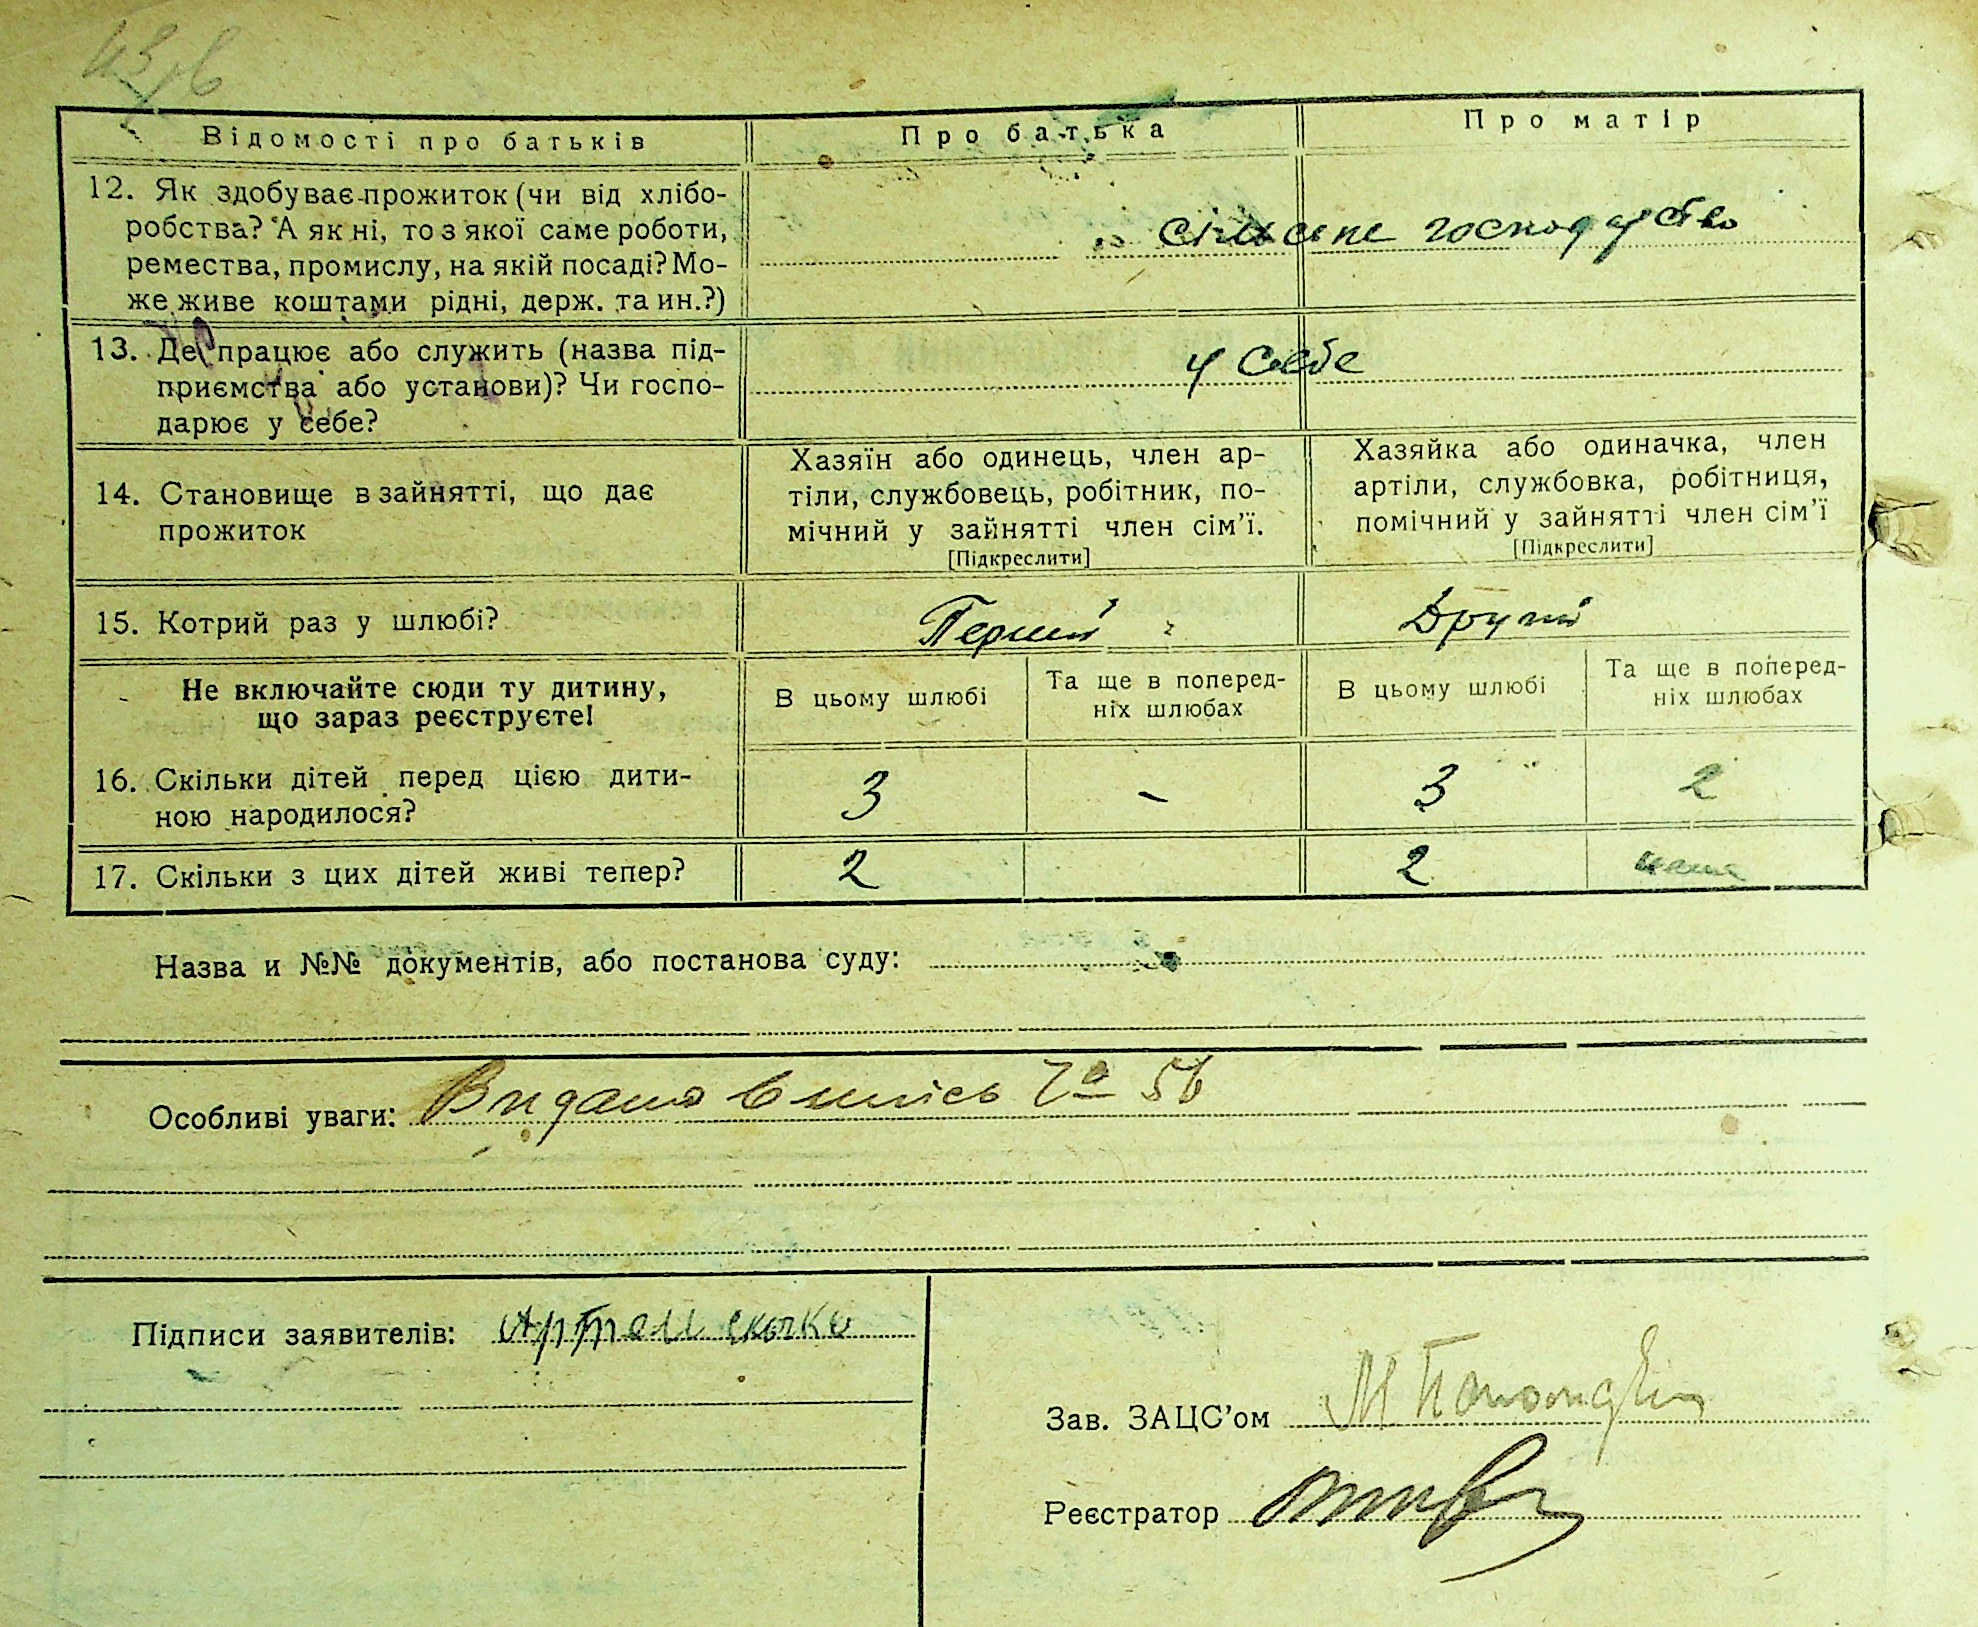 43 зв
Відомості про батьків
Про батька
Про матір
12. Як здобуває прожиток (чи від хлібо-
робства? А як ні, то з якої саме роботи,
ремества, промислу, на якій посаді? Мо-
же живе коштами рідні, держ. та ин.?)
сільське господарство
13. Де працює або служить (назва під-
приємства або установи)? Чи госпо-
дарює у себе?
у себе
14. Становище в зайнятті, що дає
прожиток
Хазяїн або одинець, член ар-
тіли, службовець, робітник, по-
мічний у зайнятті член сім'ї.
[Підкреслити]
Хазяйка або одиначка, член
артіли, службовка, робітниця,
помічний у зайнятті член сім'ї
[Підкреслити]
15. Котрий раз у шлюбі?
Перший
Другий
Не включайте сюди ту дитину,
що зараз реєструєте!
В цьому шлюбі
Та ще в поперед-
ніх шлюбах
В цьому шлюбі
Та ще в поперед-
ніх шлюбах
16. Скільки дітей перед цією дити-
ною народилося?
3
-
3
2
17. Скільки з цих дітей живі тепер?
2
2
Назва и №№ документів, або постанова суду:
Особливі уваги: Видана
Підписи заявителів: Артем
Зав. ЗАЦС'ом
Реєстратор